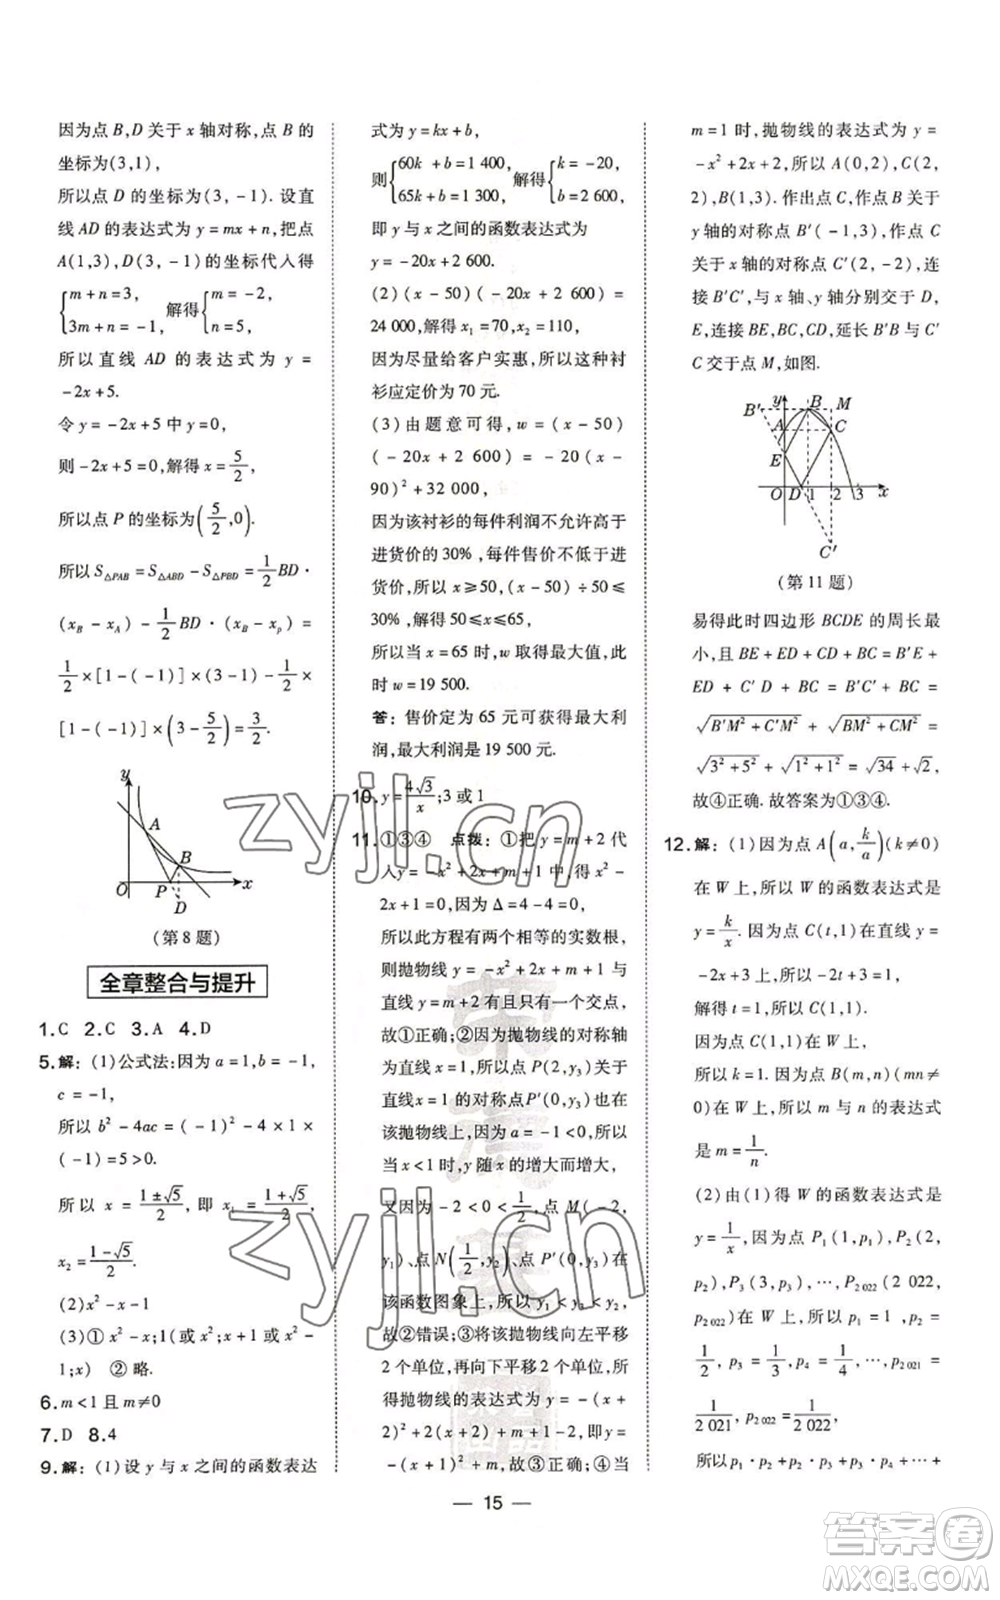 因为点 B,D 关于 x 轴对称,点 B 的
坐标为(3,1),
所以点 D 的坐标为(3, -1). 设直
线 AD 的表达式为 y = mx + n,把点
A(1,3),D(3, -1)的坐标代入得
{m + n = 3, 3m + n = -1, 解得{m = -2, n = 5,
所以直线 AD 的表达式为 y =
-2x + 5.
令 y = -2x + 5 中 y = 0,
则 -2x + 5 = 0,解得 x = 5/2,
所以点 P 的坐标为(5/2,0).
所以 S△PAB = S△ABD - S△PBD = 1/2 BD ·
(x_B - x_A) - 1/2 BD · (x_B - x_P) =
1/2 × [1 - (-1)] × (3 - 1) - 1/2 ×
[1 - (-1)] × (3 - 5/2) = 3/2.
y
A
B
O P x
D
(第 8 题)
全章整合与提升
1. C 2. C 3. A 4. D
5. 解:(1)公式法:因为 a = 1,b = -1,
c = -1,
所以 b² - 4ac = (-1)² - 4 × 1 ×
(-1) = 5 > 0.
所以 x = (1±√5)/2, 即 x₁ = (1+√5)/2,
x₂ = (1-√5)/2.
(2)x² - x - 1
(3)① x² - x;1(或 x²;x + 1 或 x² -
1;x) ②略.
6. m < 1 且 m ≠ 0
7. D 8. 4
9. 解:(1)设 y 与 x 之间的函数表达
式为 y = kx + b,
则{60k + b = 1 400, 65k + b = 1 300, 解得{k = -20, b = 2 600,
即 y 与 x 之间的函数表达式为
y = -20x + 2 600.
(2)(x - 50)( -20x + 2 600) =
24 000,解得 x₁ = 70,x₂ = 110,
因为尽量给客户实惠,所以这种衬
衫应定价为 70 元.
(3)由题意可得,w = (x - 50)
( -20x + 2 600) = -20(x -
90)² + 32 000,
因为该衬衫的每件利润不允许高于
进货价的 30%,每件售价不低于进
货价,所以 x ≥ 50,(x - 50) ÷ 50 ≤
30%,解得 50 ≤ x ≤ 65,
所以当 x = 65 时,w 取得最大值,此
时 w = 19 500.
答:售价定为 65 元可获得最大利
润,最大利润是 19 500 元.
10. y = 4√3/x;3 或 1
11. ①③④ 点拨:①把 y = m + 2 代
入 y = -x² + 2x + m + 1 中,得 x² -
2x + 1 = 0,因为 Δ = 4 - 4 = 0,
所以此方程有两个相等的实数根,
则抛物线 y = -x² + 2x + m + 1 与
直线 y = m + 2 有且只有一个交点,
故①正确;②因为抛物线的对称轴
为直线 x = 1,所以点 P(2,y₃)关于
直线 x = 1 的对称点P′(0,y₃)也在
该抛物线上,因为 a = -1 < 0,所以
当 x < 1 时,y 随 x 的增大而增大,
又因为 -2 < 0 < 1/2,点 M(-2,
y₁)、点 N(1/2,y₂)、点 P′(0,y₃)在
该函数图象上,所以 y₁ < y₃ < y₂,
故②错误;③将该抛物线向左平移
2 个单位,再向下平移 2 个单位,所
得抛物线的表达式为 y = -(x +
2)² + 2(x + 2) + m + 1 - 2 =
-(x + 1)² + m,故③正确;④当
m = 1 时,抛物线的表达式为 y =
-x² + 2x + 2,所以 A(0,2),C(2,
2),B(1,3). 作出点 B 关于
y 轴的对称点 B′(-1,3),作点 C
关于 x 轴的对称点 C′(2, -2),连
接 B′C′,与 x 轴、y 轴分别交于 D,
E,连接 BE,BC,CD,延长 B′B 与 C′
C 交于点 M,如图.
B′ y B M
A C
E
O D 1 2 3 x
C′
(第 11 题)
易得此时四边形 BCDE 的周长最
小,且 BE + ED + CD + BC = B′E +
ED + C′D + BC = B′C′ + BC =
√(B′M² + C′M²) + √(BM² + CM²)
= √(3² + 5²) + √(1² + 1²) = √34 + √2,
故④正确. 故答案为①③④.
12. 解:(1)因为点 A(a, k/a)(k ≠ 0)
在 W 上,所以 W 的函数表达式是
y = k/x. 因为点 C(t,1)在直线 y =
-2x + 3 上,所以 -2t + 3 = 1,
解得 t = 1,所以 C(1,1).
因为点 C(1,1)在 W 上,
所以 k = 1.因为点 B(m,n)(mn ≠
0)在 W 上,所以 m 与 n 的表达式
是 m = 1/n.
(2)由(1)得 W 的函数表达式是
y = 1/x,因为点 P₁(1,p₁),P₂(2,
p₂),P₃(3,p₃),…,P₂ ₀₂₂(2 022,
p₂ ₀₂₂)在 W 上,所以 p₁ = 1,p₂ =
1/2,p₃ = 1/3,p₄ = 1/4,…,p₂ ₀₂₁ =
1/2 021,p₂ ₀₂₂ = 1/2 022,
所以 p₁ · p₂ + p₂ · p₃ + … +
— 15 —
zyjl.cn
zyjl.cn
答案圈
MXQE.COM